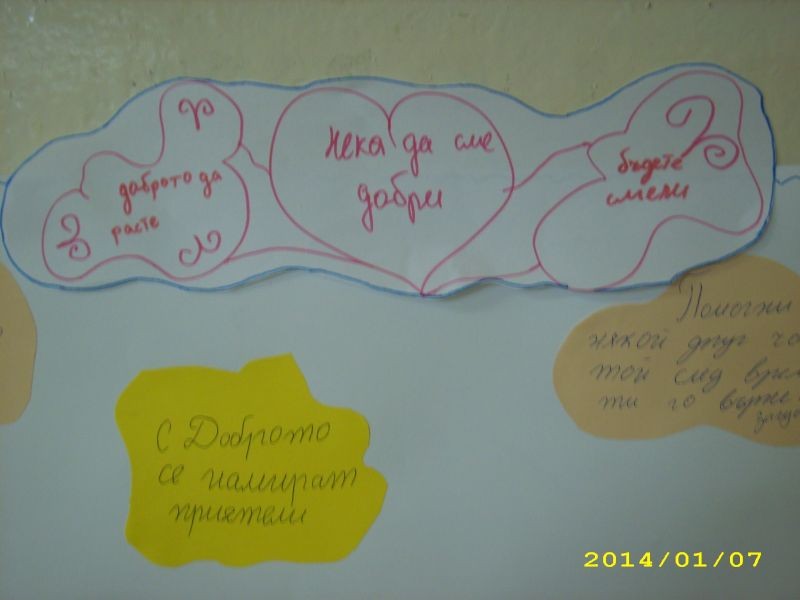 доброто да
расте
Нека да сме
добри
бъдете
смели
С Доброто
се намират
приятели
Помогни
някой друг
той след врем
ти го върже
защо
2014/01/07